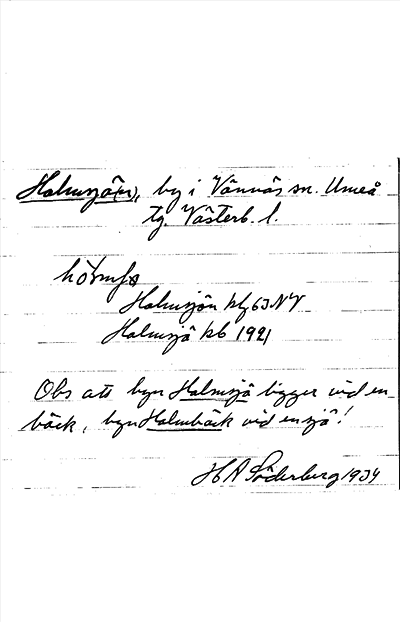 Holmsjö(n), by i Vännäs sn. Umeå
tg. Västerb. l.
Holmsjön kbl 63 NV
Holmsjö kb 1921
Obs att byn Holmsjö ligger vid en
bäck, byn Holmbäck vid en sjö!
H A Söderberg 1934